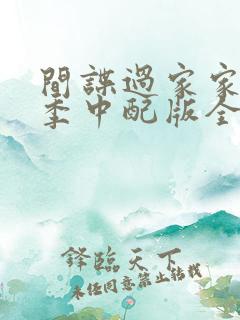 間諜過家家
季中配版全
鋒臨天下
未经同意禁止转载